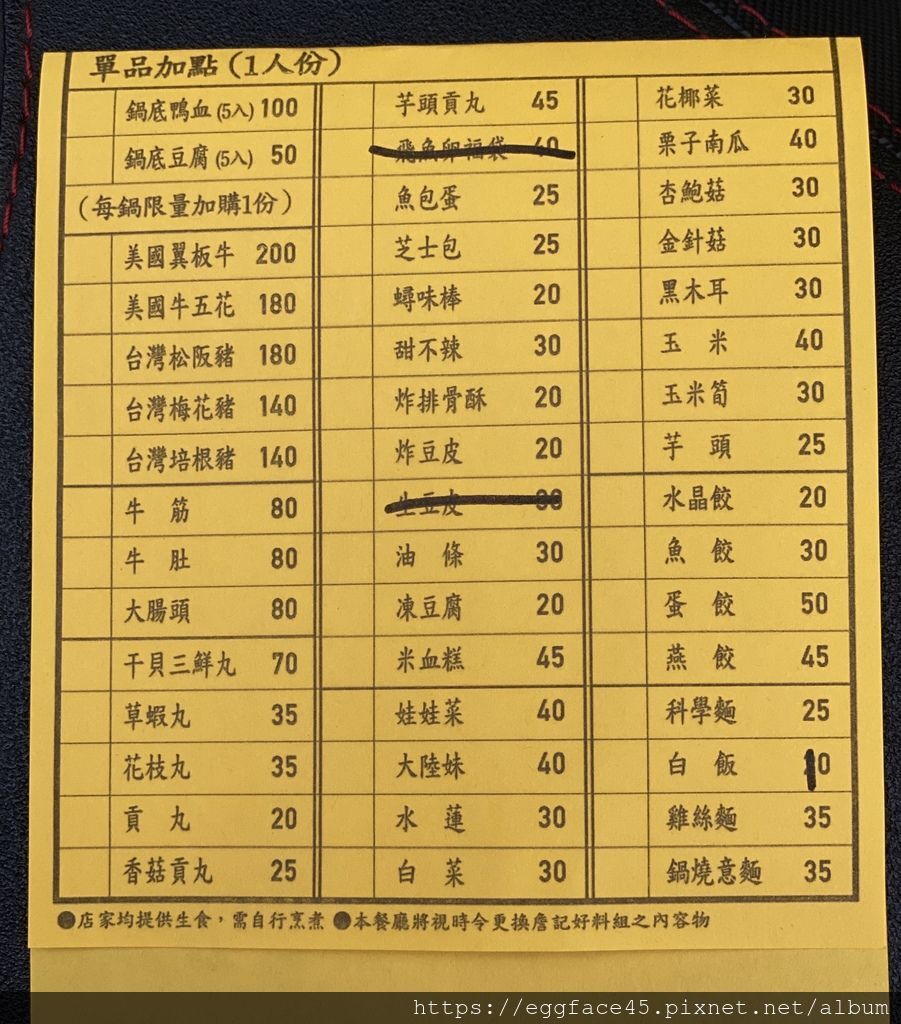 單品加點(1人份)
鍋底鴨血(5入) 100
鍋底豆腐(5入) 50
(每鍋限量加購1份)
美國翼板牛 200
美國牛五花 180
台灣松阪豬 180
台灣梅花豬 140
台灣培根豬 140
牛 筋 80
牛 肚 80
大腸頭 80
干貝三鮮丸 70
草蝦丸 35
花枝丸 35
貢 丸 20
香菇貢丸 25
芋頭貢丸 45
飛魚卵福袋 40
魚包蛋 25
芝士包 25
蟳味棒 20
甜不辣 30
炸排骨酥 20
炸豆皮 20
生豆皮 30
油 條 30
凍豆腐 20
米血糕 45
娃娃菜 40
大陸妹 40
水 蓮 30
白 菜 30
花椰菜 30
栗子南瓜 40
杏鮑菇 30
金針菇 30
黑木耳 30
玉 米 40
玉米筍 30
芋 頭 25
水晶餃 20
魚 餃 30
蛋 餃 50
燕 餃 45
科學麵 25
白 飯 10
雞絲麵 35
鍋燒意麵 35
●店家均提供生食，需自行烹煮 ●本餐廳將視時令更換詹記好料組之內容物
https://eggface45.pixnet.net/album